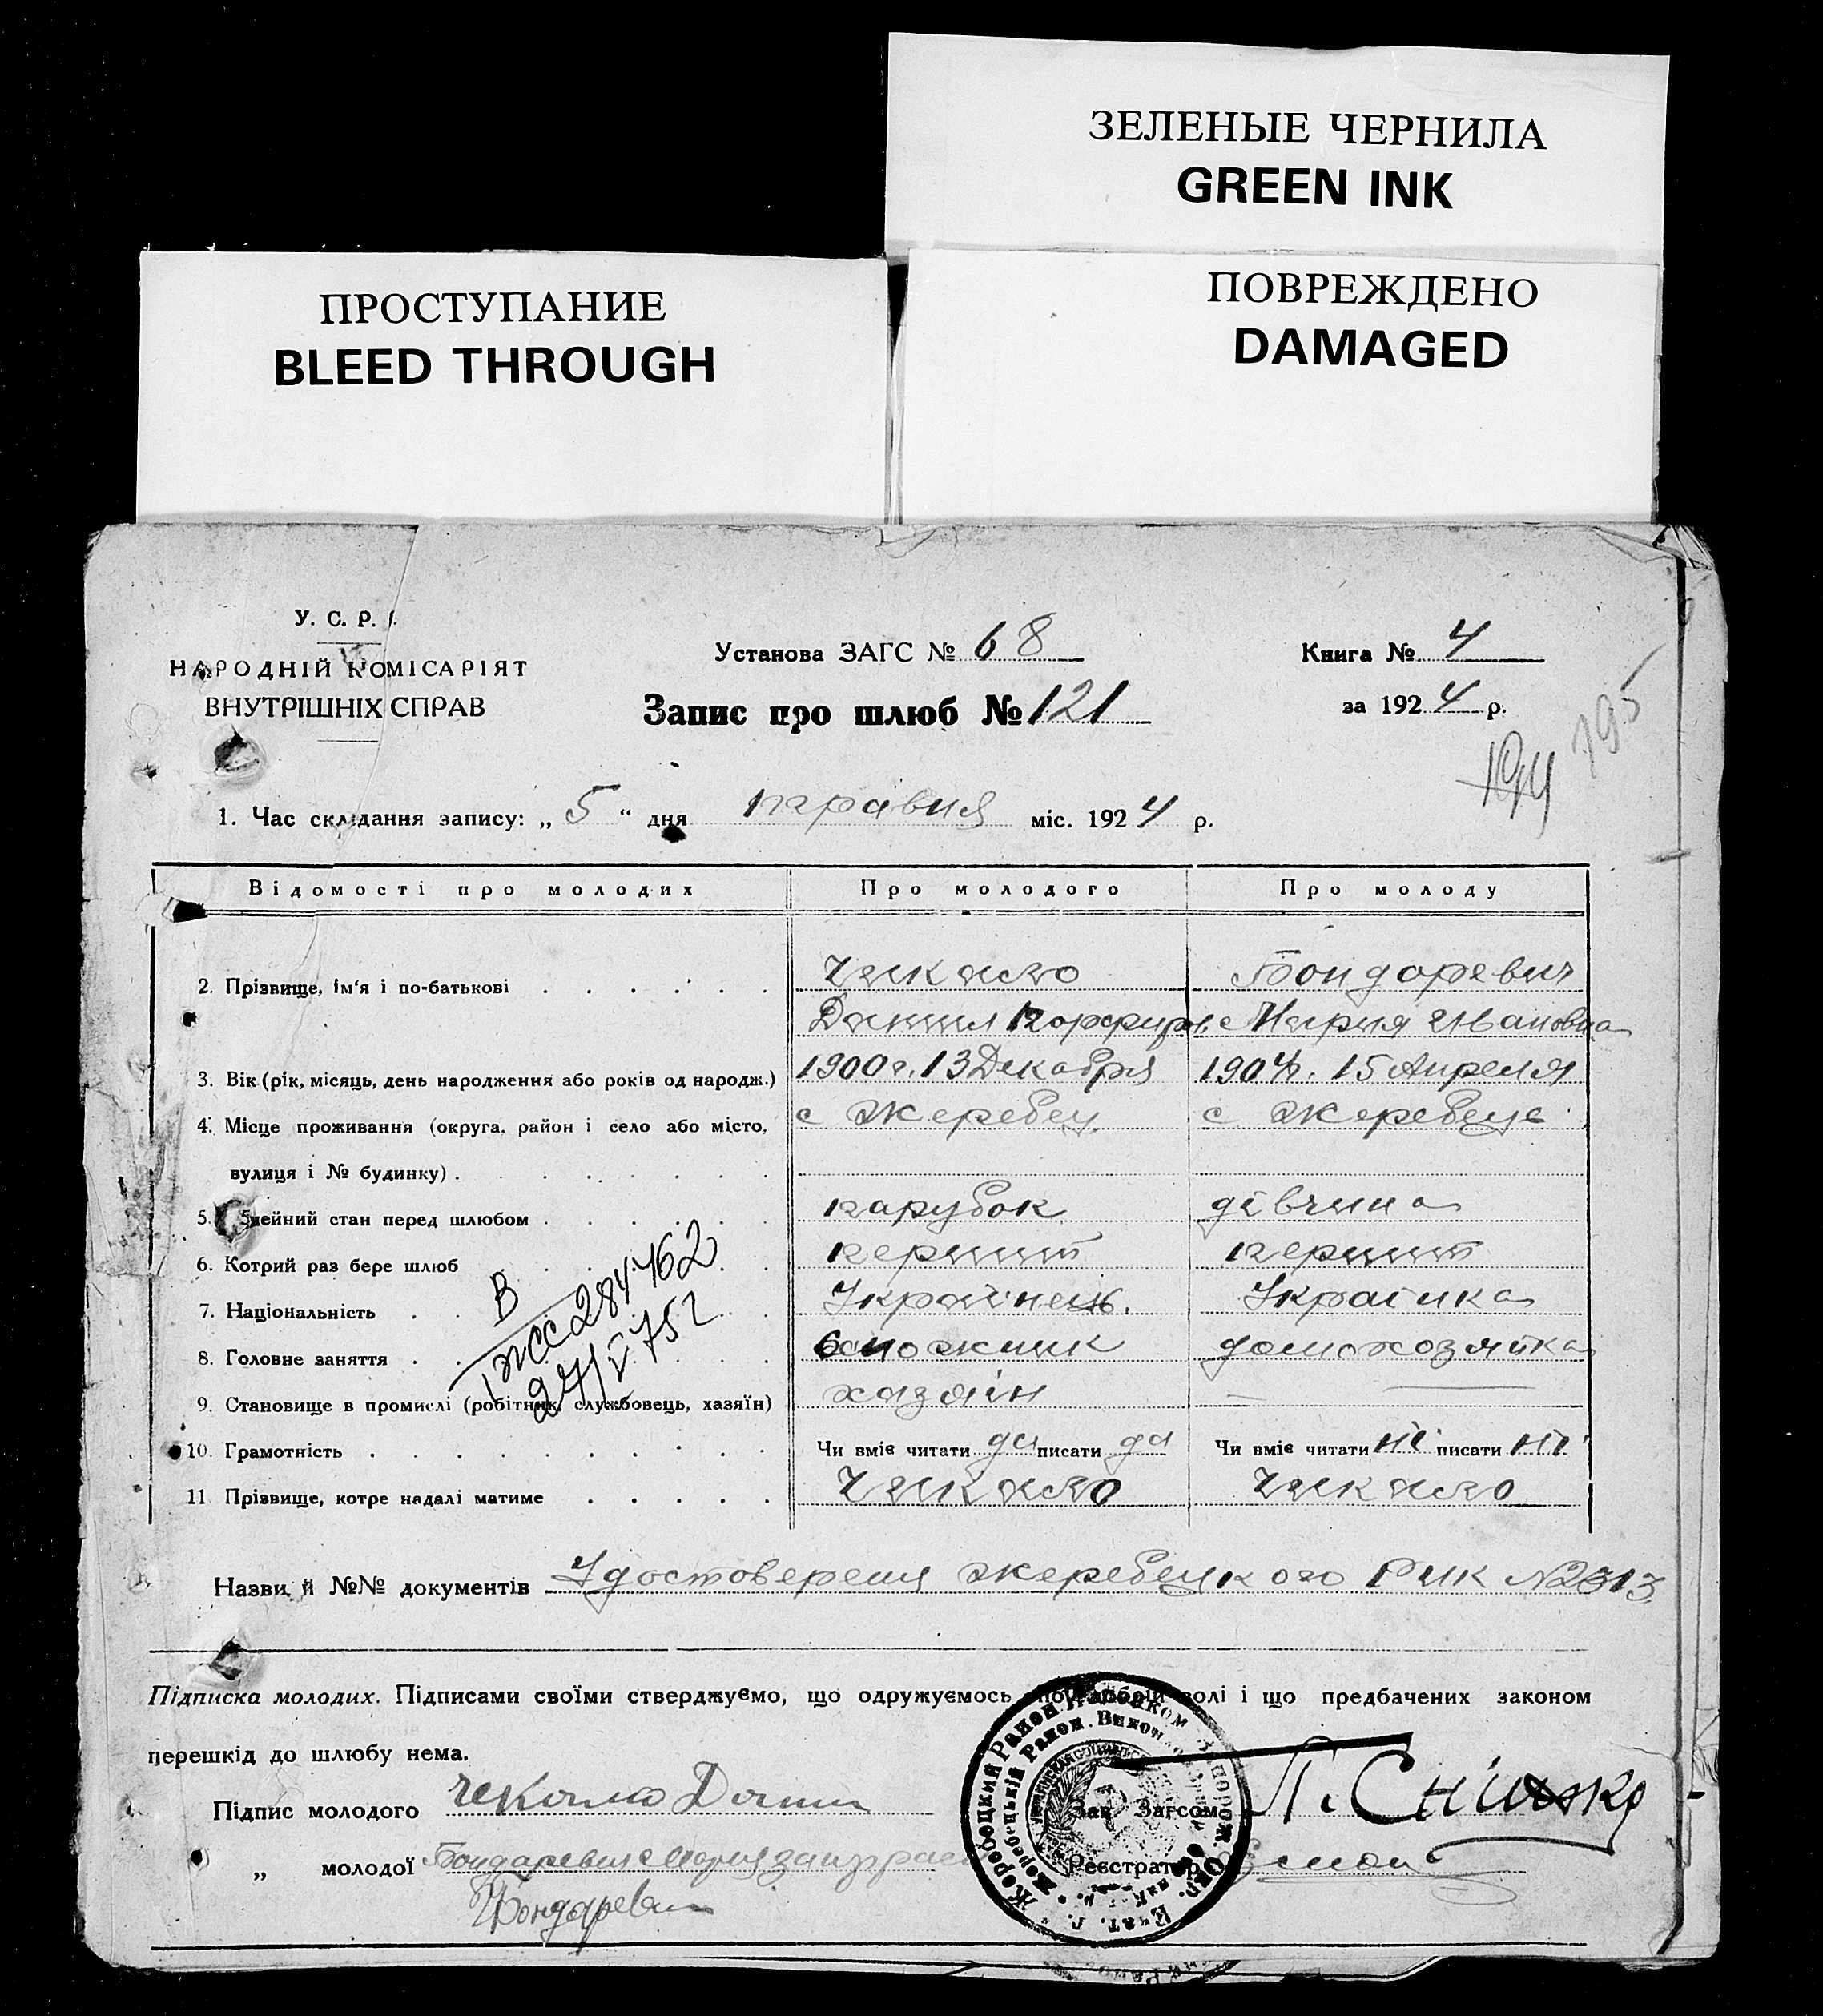 ЗЕЛЕНЫЕ ЧЕРНИЛА
GREEN INK
ПРОСТУПАНИЕ
BLEED THROUGH
ПОВРЕЖДЕНО
DAMAGED
У. С. Р. Р.
НАРОДНІЙ КОМІСАРІЯТ
ВНУТРІШНІХ СПРАВ
Установа ЗАГС № 68
Книга № 4
Запис про шлюб № 121
за 1924 р.
195
194
1. Час складання запису: „ 5 “ дня травня міс. 1924 р.
Відомості про молодих Про молодого Про молоду
2. Прізвище, ім'я і по-батькові Чекало Бондаревич
Данил Порфиров. Мария Ивановна
3. Вік (рік, місяць, день народження або років од народж.) 1900 г. 13 Декабря 1904 г. 15 Апреля
4. Місце проживання (округа, район і село або місто, с Жеребец с Жеребце
вулиця і № будинку)
5. Сімейний стан перед шлюбом парубок дівчина
6. Котрий раз бере шлюб перший перший
7. Національність Українець. Українка
8. Головне заняття сапожник домохозяйка
9. Становище в промислі (робітник, службовець, хазяїн) хазяїн —
10. Грамотність Чи вміє читати да писати да Чи вміє читати ні писати ні
11 Прізвище, котре надалі матиме Чекало Чекало
В
284462
27/V 75 г
Назви й №№ документів Удостоверения Жеребецкого Рик № 2313
Підписка молодих. Підписами своїми стверджуємо, що одружуємось по добрій волі і що предбачених законом
перешкід до шлюбу нема.
Підпис молодого Чекало Данил
Зав. Загсом
„ молодої Бондаревич Мария
Реєстратор
Бондаревич